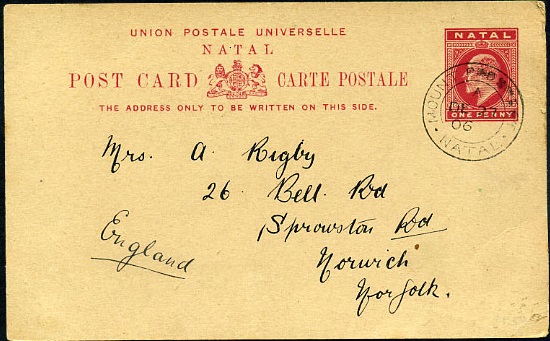 UNION POSTALE UNIVERSELLE
NATAL
POST CARD CARTE POSTALE
THE ADDRESS ONLY TO BE WRITTEN ON THIS SIDE.
NATAL
ONE PENNY
MOUNT
A
DE 27
06
NATAL
Mrs. A Rigby
26 Bell Rd
Sprowston Rd
Norwich
Norfolk.
England